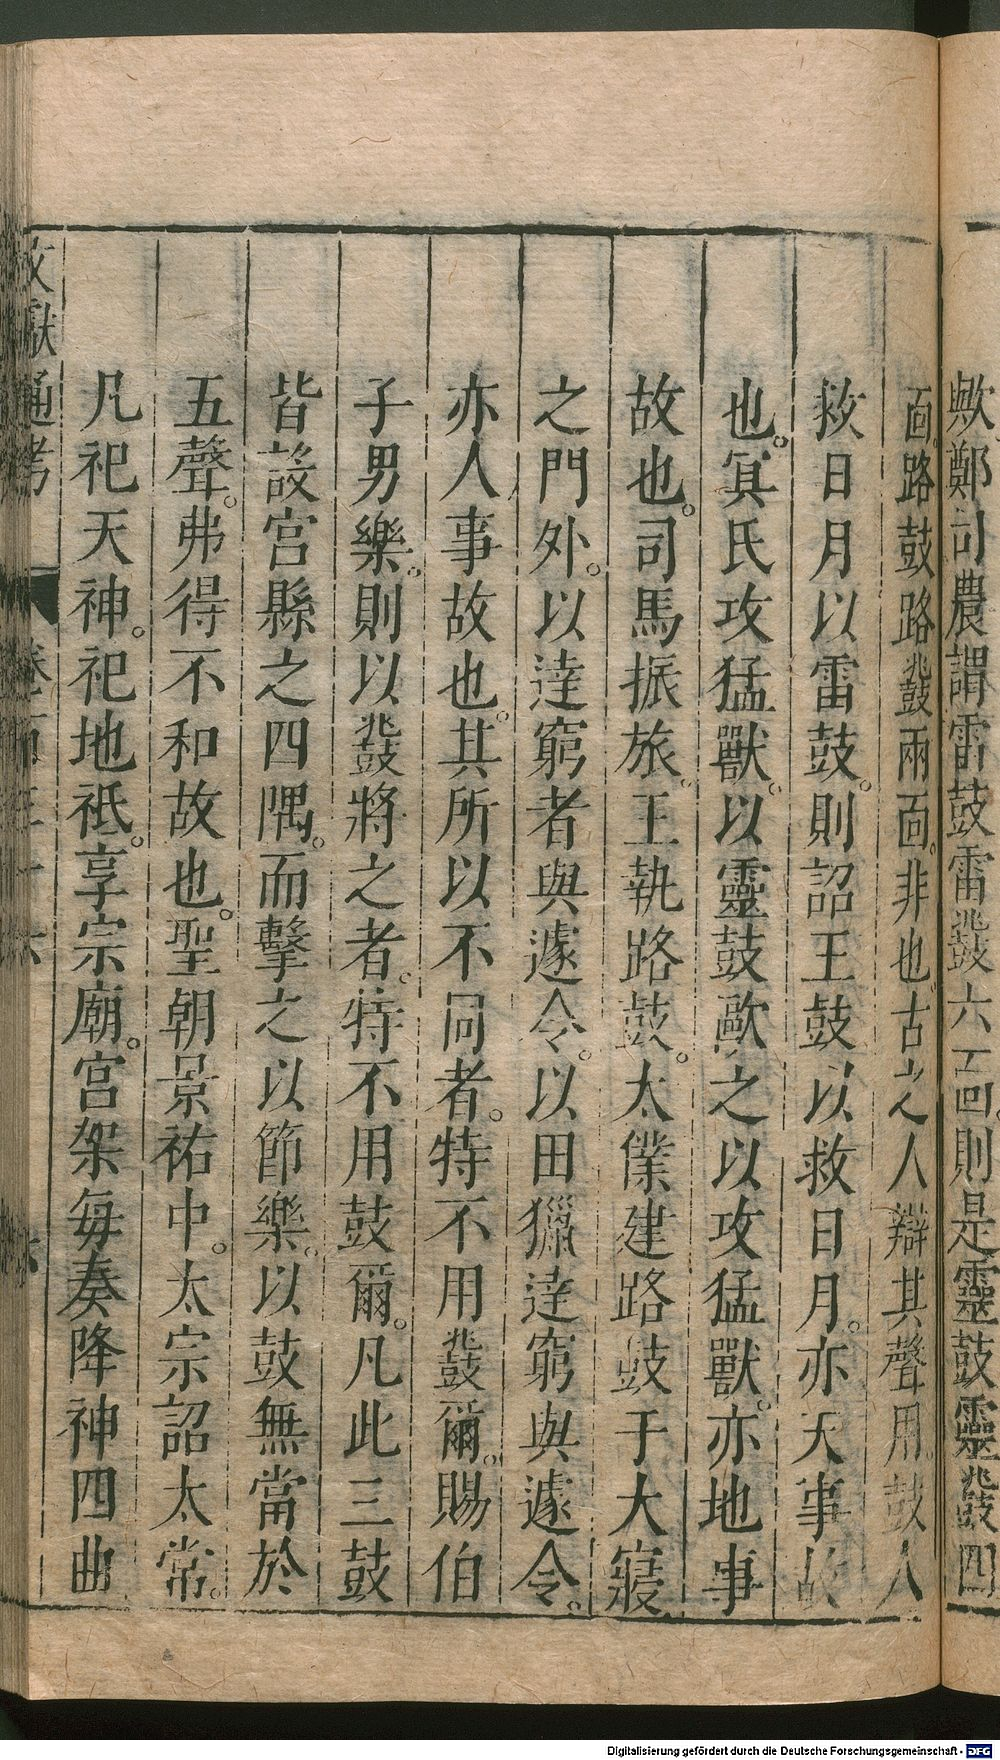 歟鄭司農謂雷鼓雷鼗六面則是靈鼓靈鼗四
面。路鼓路鼗兩面。非也。古之人辯其聲用。鼓人
救日月以雷鼓。則詔王鼓以救日月。亦天事故
也。冥氏攻猛獸。以靈鼓敺之以攻猛獸。亦地事
故也。司馬振旅。王執路鼓。太僕建路鼓于大寢
之門外。以達窮者與遽令。以田獵達窮與遽令。
亦人事故也。其所以不同者。特不用鼗爾。賜伯
子男樂。則以鼗將之者。特不用鼓爾。凡此三鼓
皆設宮縣之四隅。而擊之以節樂。以鼓無當於
五聲。弗得不和故也。聖朝景祐中。太宗詔太常。
凡祀天神。祀地祇。享宗廟。宮架每奏降神四曲
文獻通考 卷一百三十六 六
Digitalisierung gefördert durch die Deutsche Forschungsgemeinschaft - DFG